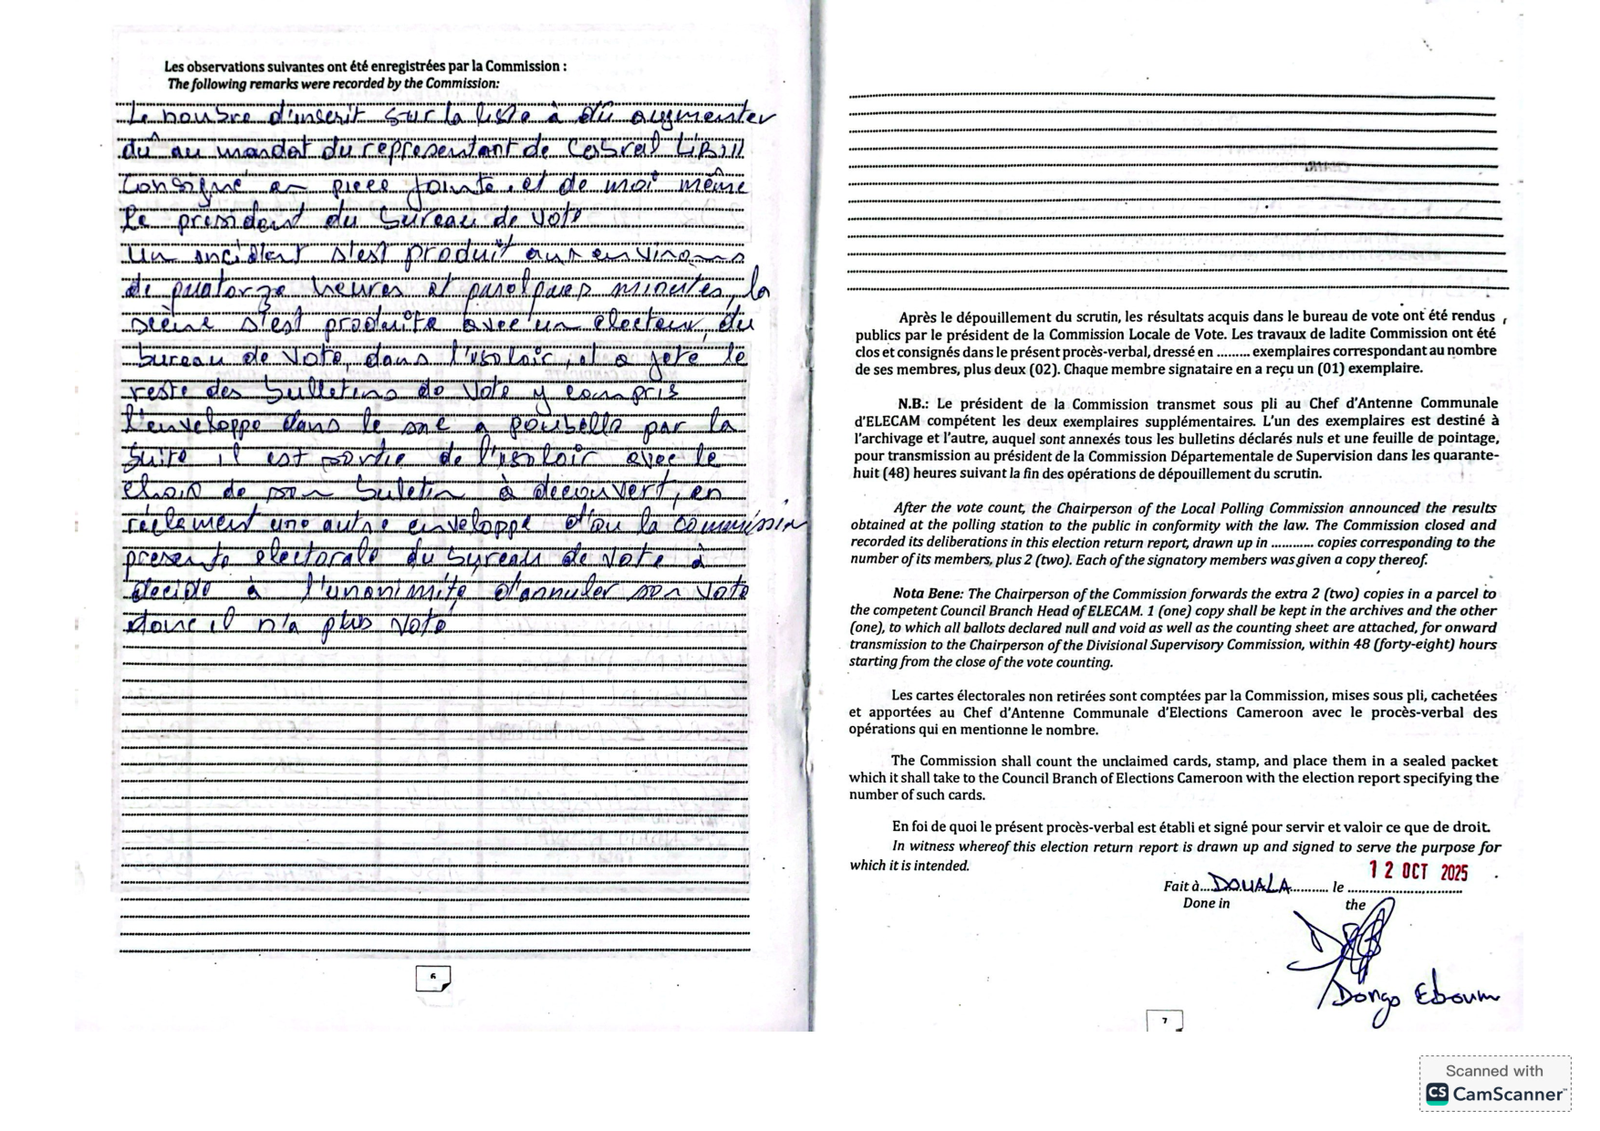 Les observations suivantes ont été enregistrées par la Commission :
The following remarks were recorded by the Commission:
Le nombre d'inscrit sur la liste à dû augmenter
dû au mandat du representant de Cabral LIBII
Consigné en piece jointe. et de moi même
le president du bureau de vote
Un incident s'est produit aux environs
de quatorze heures et quelques minutes, la
scène s'est produite avec un electeur, du
bureau de vote, dans l'isoloir, il a jeté le
reste des bulletins de vote y compris
l'enveloppe dans le sac a poubelle par la
suite il est sortie de l'isoloir avec le
choix de son buletin à decouvert, en
réclament une autre enveloppe d'où la commission
presente electorale du bureau de vote à
decidé à l'unanimité d'annuler son vote
donc il n'a plus voté
6
Après le dépouillement du scrutin, les résultats acquis dans le bureau de vote ont été rendus
publics par le président de la Commission Locale de Vote. Les travaux de ladite Commission ont été
clos et consignés dans le présent procès-verbal, dressé en ......... exemplaires correspondant au nombre
de ses membres, plus deux (02). Chaque membre signataire en a reçu un (01) exemplaire.
N.B.: Le président de la Commission transmet sous pli au Chef d'Antenne Communale
d'ELECAM compétent les deux exemplaires supplémentaires. L'un des exemplaires est destiné à
l'archivage et l'autre, auquel sont annexés tous les bulletins déclarés nuls et une feuille de pointage,
pour transmission au président de la Commission Départementale de Supervision dans les quarante-
huit (48) heures suivant la fin des opérations de dépouillement du scrutin.
After the vote count, the Chairperson of the Local Polling Commission announced the results
obtained at the polling station to the public in conformity with the law. The Commission closed and
recorded its deliberations in this election return report, drawn up in ............ copies corresponding to the
number of its members, plus 2 (two). Each of the signatory members was given a copy thereof.
Nota Bene: The Chairperson of the Commission forwards the extra 2 (two) copies in a parcel to
the competent Council Branch Head of ELECAM. 1 (one) copy shall be kept in the archives and the other
(one), to which all ballots declared null and void as well as the counting sheet are attached, for onward
transmission to the Chairperson of the Divisional Supervisory Commission, within 48 (forty-eight) hours
starting from the close of the vote counting.
Les cartes électorales non retirées sont comptées par la Commission, mises sous pli, cachetées
et apportées au Chef d'Antenne Communale d'Elections Cameroon avec le procès-verbal des
opérations qui en mentionne le nombre.
The Commission shall count the unclaimed cards, stamp, and place them in a sealed packet
which it shall take to the Council Branch of Elections Cameroon with the election report specifying the
number of such cards.
En foi de quoi le présent procès-verbal est établi et signé pour servir et valoir ce que de droit.
In witness whereof this election return report is drawn up and signed to serve the purpose for
which it is intended.
12 OCT 2025
Fait à...DOUALA............ le ..............................
Done in the
Dongo Eboum
7
Scanned with
CS CamScanner